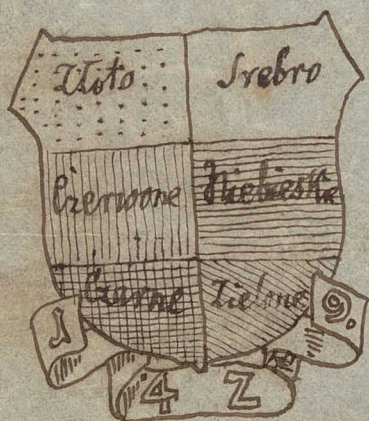 Złoto Srebro
Czerwone Niebieskie
Czarne Zielone
1 4 2 9.